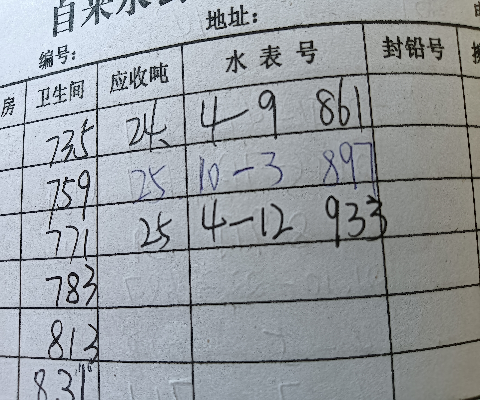 自来水
地址：
编号：
房 卫生间 应收吨 水表号 封铅号
735 24 4-9 861
759 25 10-3 897
771 25 4-12 933
783
813
831